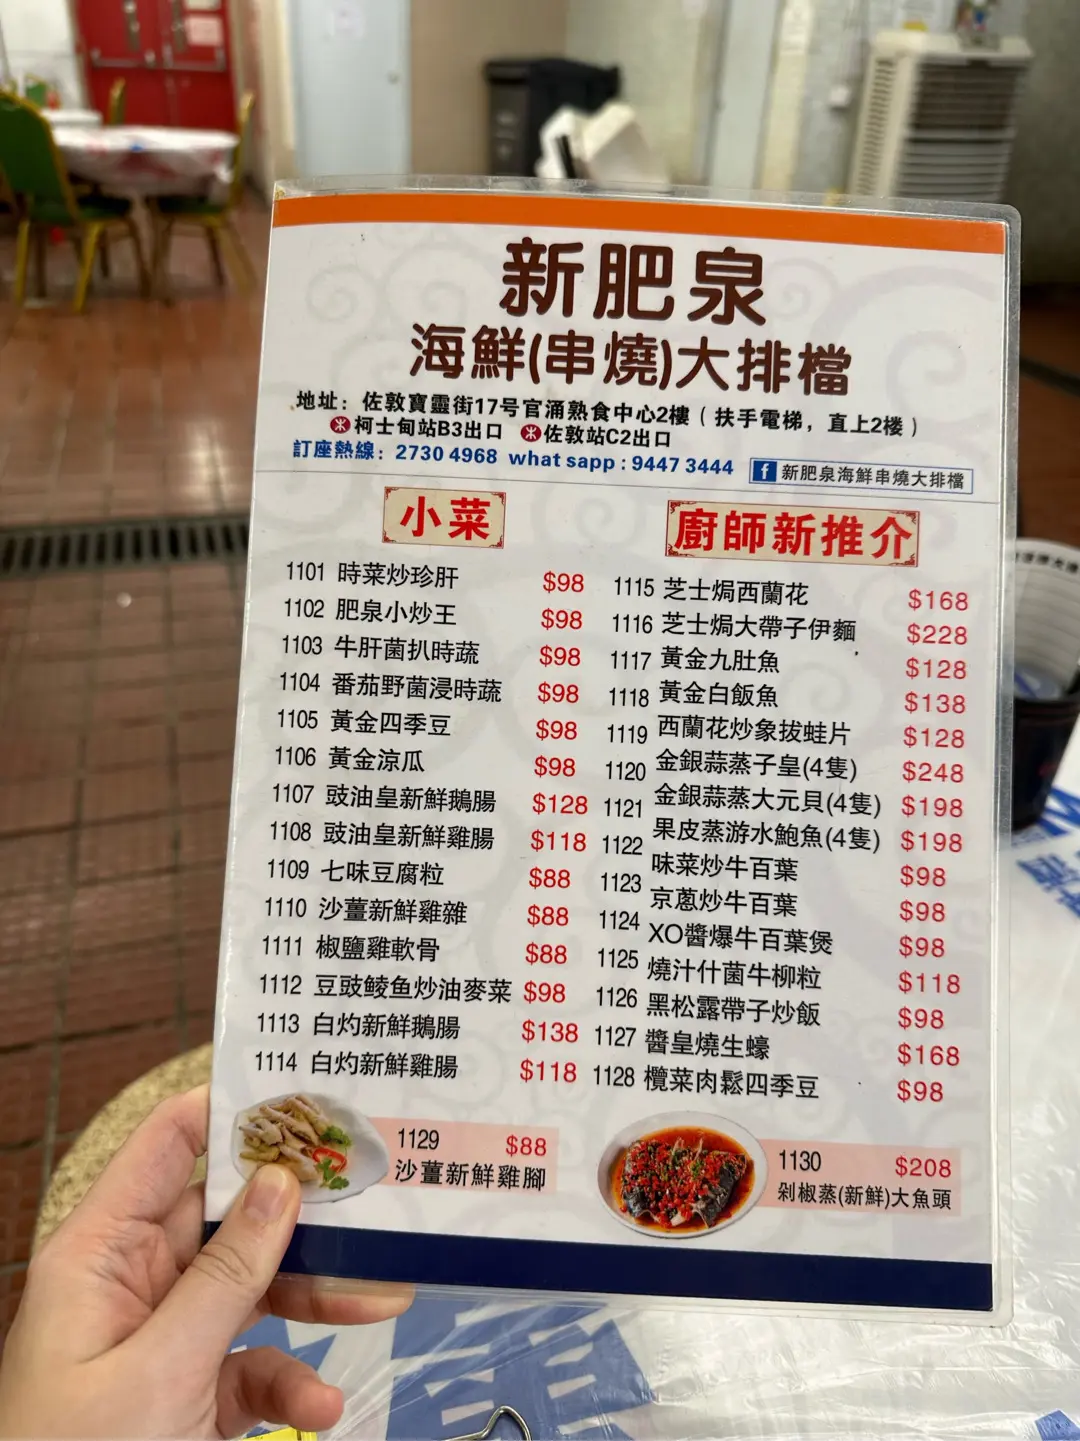 新肥泉
海鮮(串燒)大排檔
地址：佐敦寶靈街17号官涌熟食中心2樓（扶手電梯，直上2楼）
柯士甸站B3出口 佐敦站C2出口
訂座熱線：2730 4968 what sapp : 9447 3444
f 新肥泉海鮮串燒大排檔
小菜
1101 時菜炒珍肝 $98
1102 肥泉小炒王 $98
1103 牛肝菌扒時蔬 $98
1104 番茄野菌浸時蔬 $98
1105 黃金四季豆 $98
1106 黃金涼瓜 $98
1107 豉油皇新鮮鵝腸 $128
1108 豉油皇新鮮雞腸 $118
1109 七味豆腐粒 $88
1110 沙薑新鮮雞雜 $88
1111 椒鹽雞軟骨 $88
1112 豆豉鲮鱼炒油麥菜 $98
1113 白灼新鮮鵝腸 $138
1114 白灼新鮮雞腸 $118
廚師新推介
1115 芝士焗西蘭花 $168
1116 芝士焗大帶子伊麵 $228
1117 黃金九肚魚 $128
1118 黃金白飯魚 $138
1119 西蘭花炒象拔蚌片 $128
1120 金銀蒜蒸子皇(4隻) $248
1121 金銀蒜蒸大元貝(4隻) $198
1122 果皮蒸游水鮑魚(4隻) $198
1123 味菜炒牛百葉 $98
1124 京蔥炒牛百葉 $98
1125 XO醬爆牛百葉煲 $98
1126 燒汁什菌牛柳粒 $118
1127 黑松露帶子炒飯 $98
1128 醬皇燒生蠔 $168
欖菜肉鬆四季豆 $98
1129 $88
沙薑新鮮雞腳
1130 $208
剁椒蒸(新鮮)大魚頭